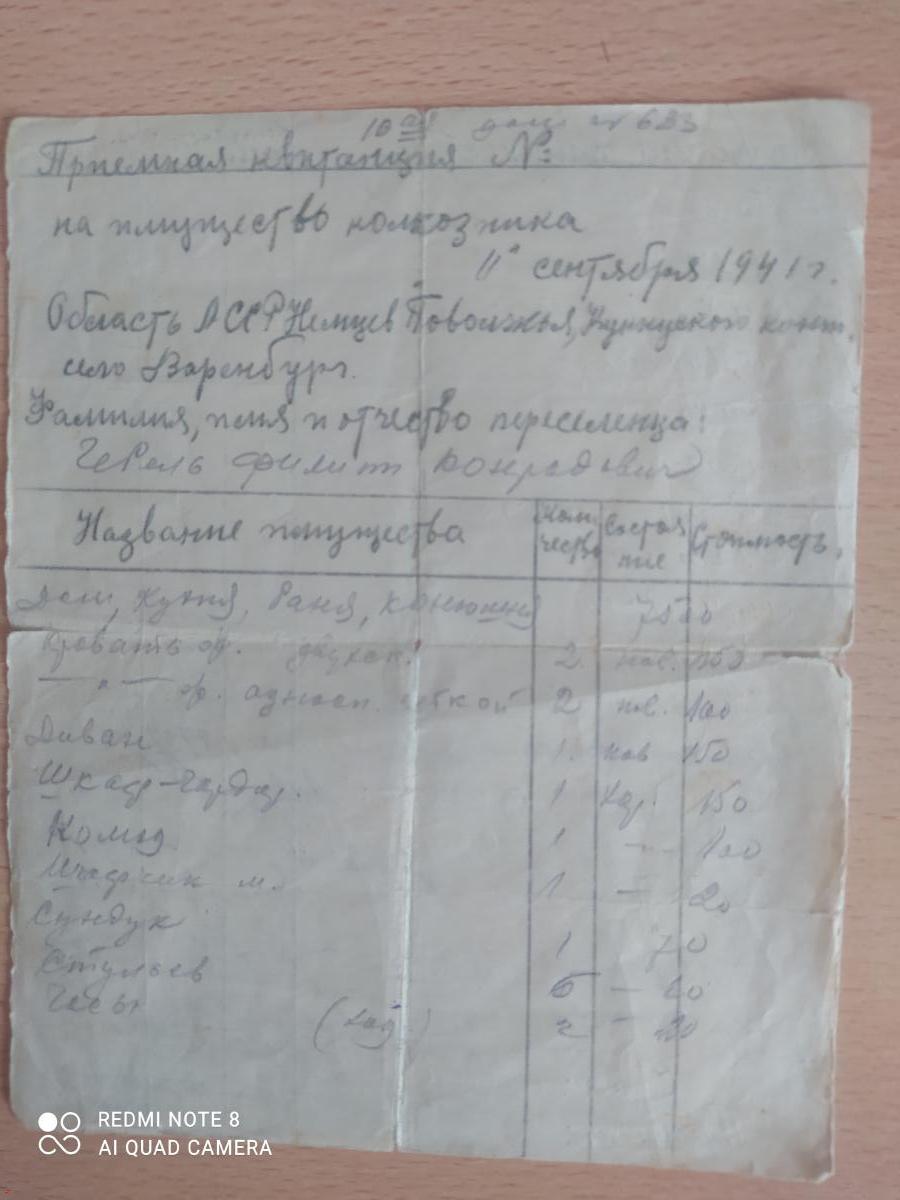 Приемная квитанция №
на имущество колхозника
11" сентября 1941 г.
Область АССР Немцев Поволжья, Куккуского кант.
село Варенбург.
Фамилия, имя и отчество переселенца:
Филипп Конрадович
Название имущества Коли- чество Состоя ние Стоимость.
Дом, кухня, баня, конюшня 7500
Кровать 2
2 100
Диван 1 нов 150
Шкаф-гардер. 1 хор. 150
Комод 1 — 100
Шкафчик м. 1 — 20
Сундук 1 70
Стульев 6 —
Часы 2 —
REDMI NOTE 8
AI QUAD CAMERA